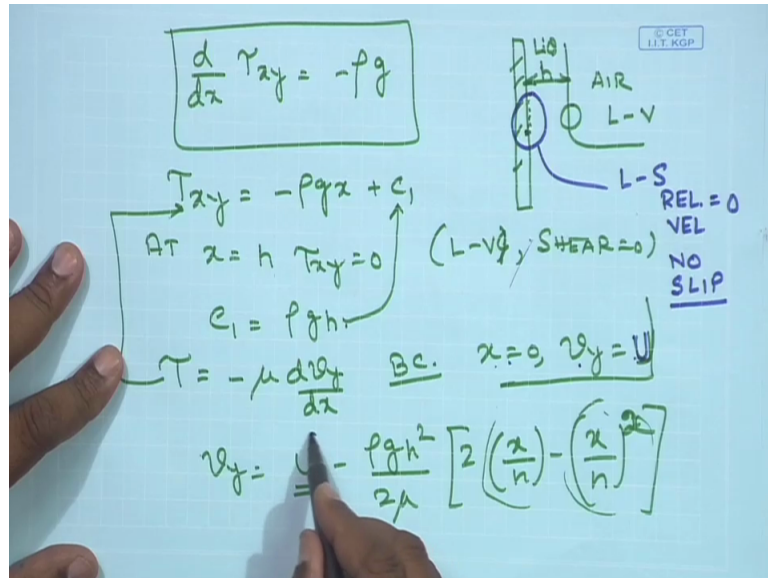 © CET
I.I.T. KGP
d/dx τxy = -ρg
LiQ
h
AIR
L-V
L-S
REL. = 0
VEL
NO
SLIP
τxy = -ρgx + C₁
AT x = h τxy = 0 (L-V, SHEAR = 0)
C₁ = ρgh
τ = -μ dvy/dx B.C. x = 0, vy = U
vy = U - ρgh²/2μ [2(x/h) - (x/h)²]